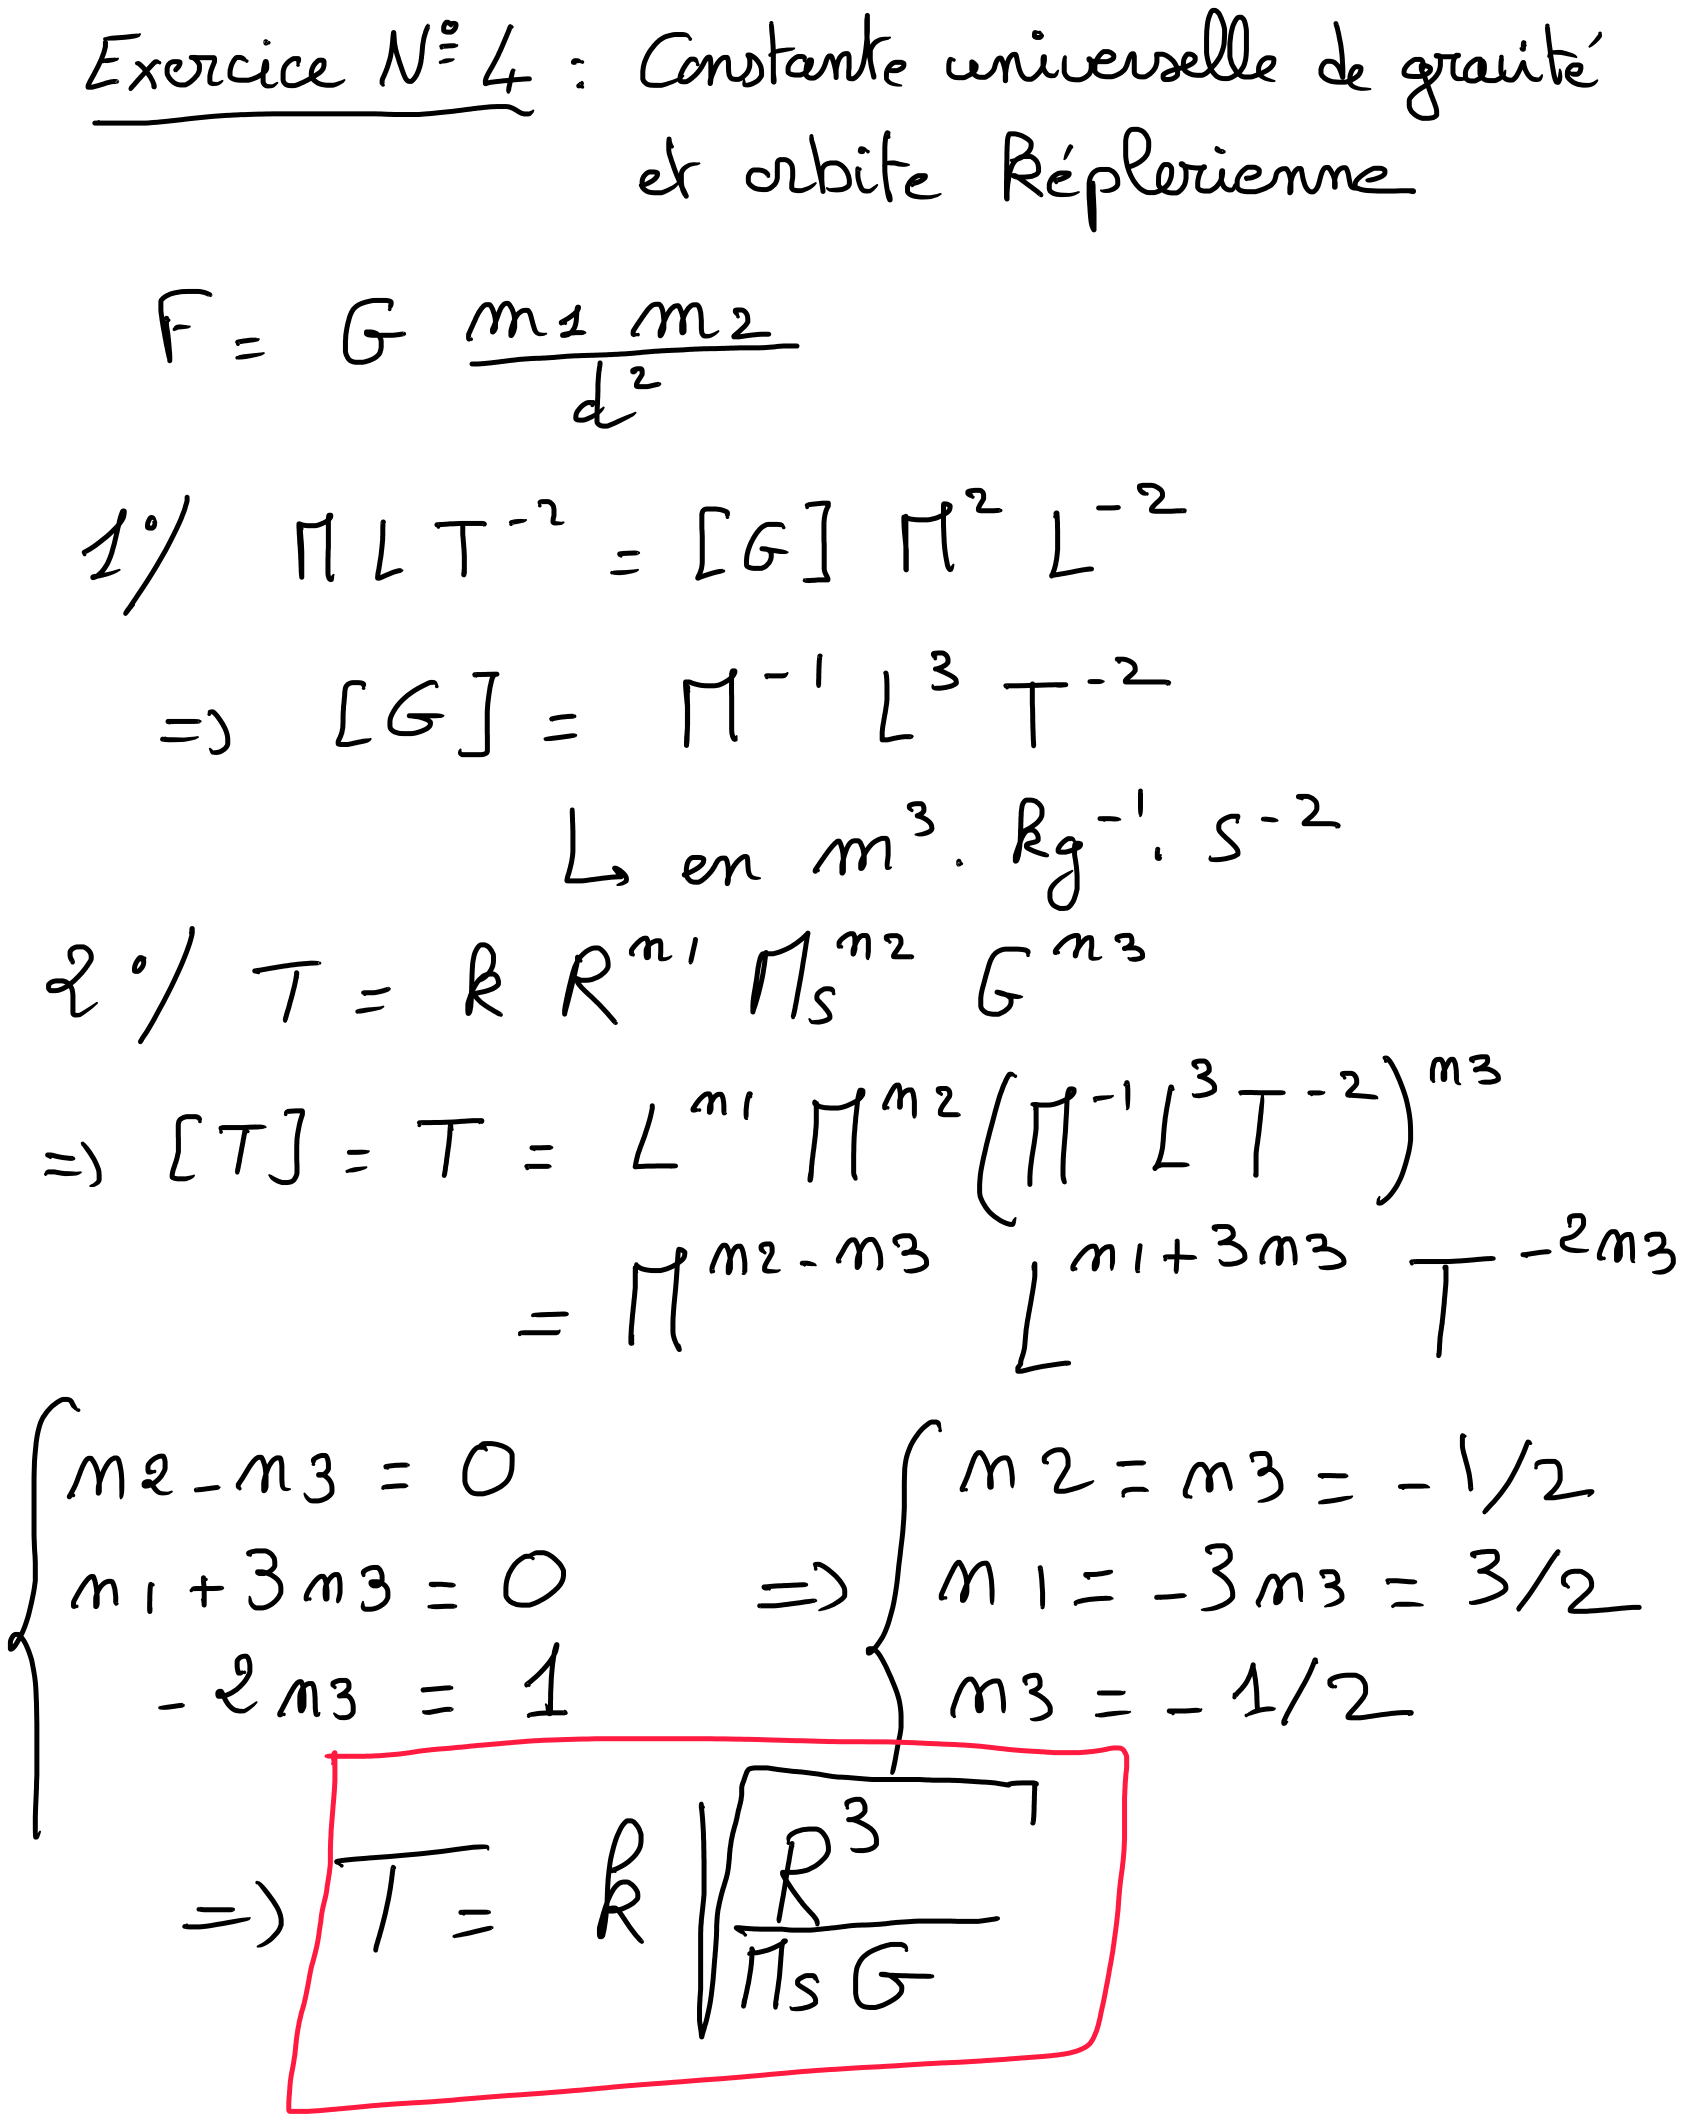 Exercice N° 4 : Constante universelle de gravité
et orbite Képlerienne
F = G m1 m2 / d²
1°/ M L T⁻² = [G] M² L⁻²
=> [G] = M⁻¹ L³ T⁻²
↳ en m³ . kg⁻¹ . s⁻²
2°/ T = k R^n1 Ms^n2 G^n3
=> [T] = T = L^n1 M^n2 (M⁻¹ L³ T⁻²)^n3
= M^(n2-n3) L^(n1+3n3) T^(-2n3)
n2 - n3 = 0 n2 = n3 = -1/2
n1 + 3n3 = 0 => n1 = -3n3 = 3/2
-2n3 = 1 n3 = -1/2
=> T = k √(R³ / Ms G)